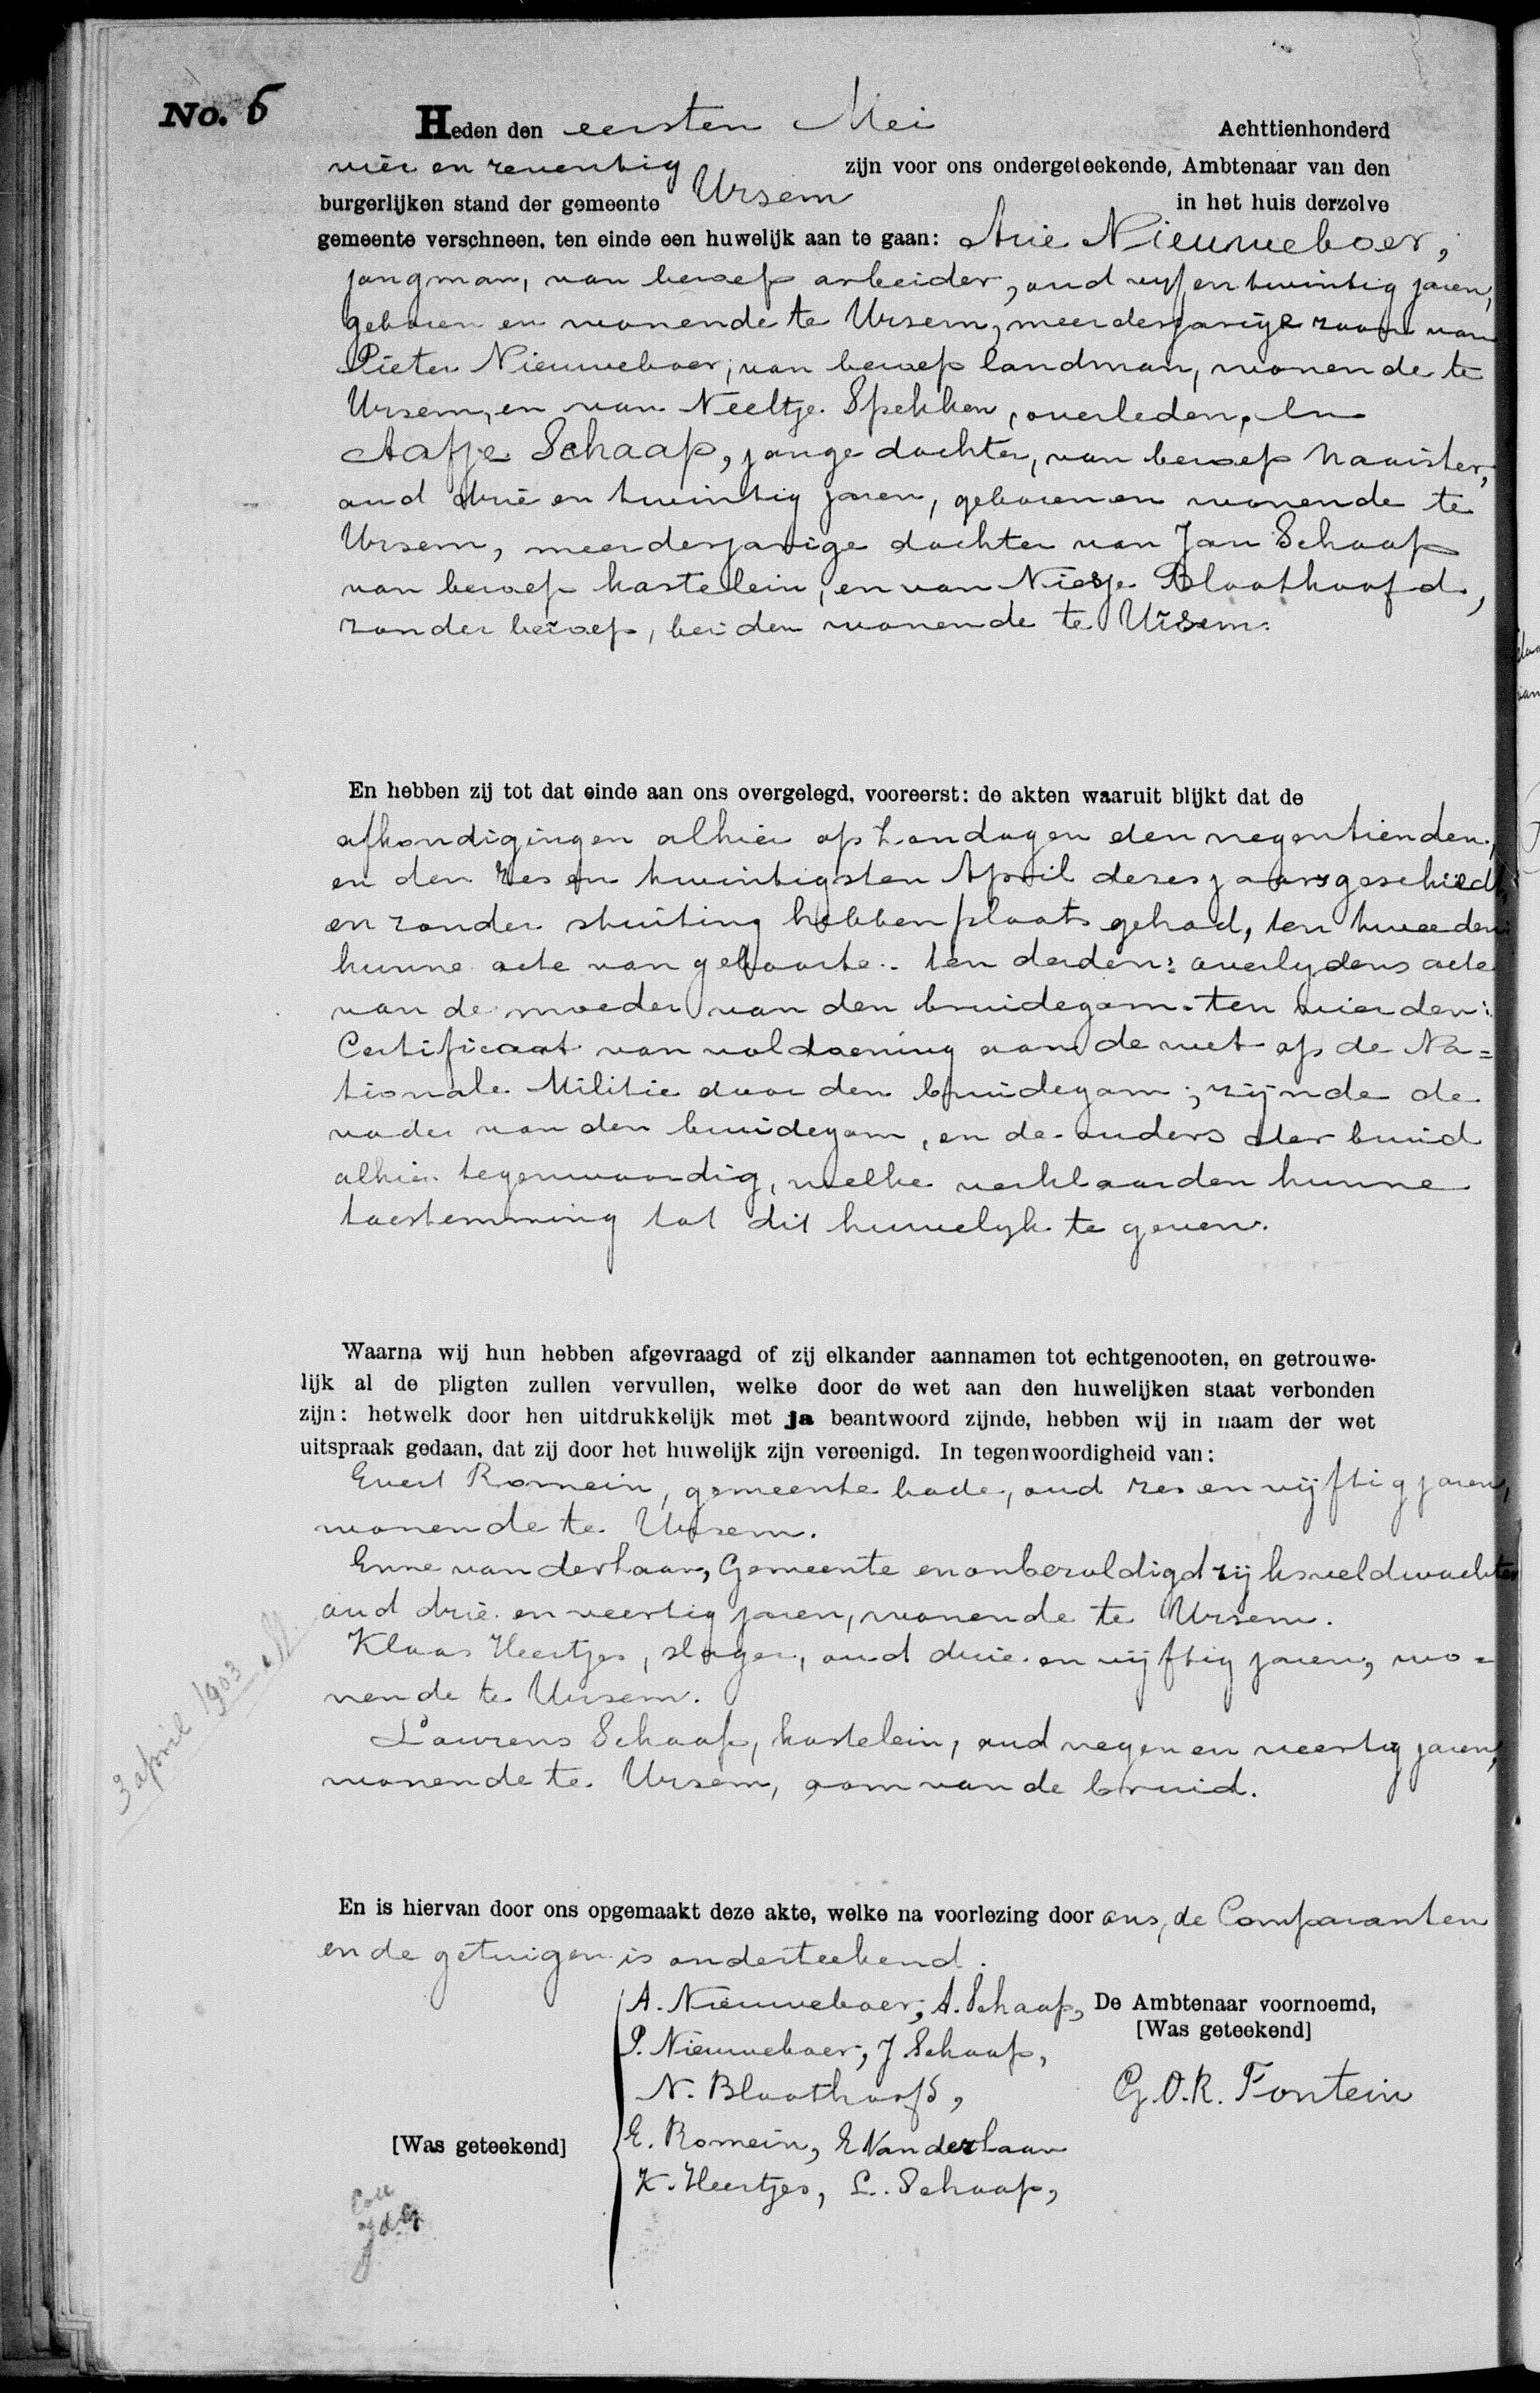 No. 6
Heden den eersten Mei Achttienhonderd
vier en zeventig zijn voor ons ondergeteekende, Ambtenaar van den
burgerlijken stand der gemeente Ursem in het huis derzelve
gemeente verschneen, ten einde een huwelijk aan te gaan: Arie Nieuweboer,
jongman, van beroep arbeider, oud vyf en twintig jaren,
geboren en wonende te Ursem, meerderjarige zoon van
Pieter Nieuweboer, van beroep landman, wonende te
Ursem, en van Neeltje Spekken, overleden, En
Aafje Schaap, jonge dochter, van beroep naaister,
oud drie en twintig jaren, geboren en wonende te
Ursem, meerderjarige dochter van Jan Schaap
van beroep kastelein, en van Niesje Bloothoofd,
zonder beroep, beiden wonende te Ursem.
En hebben zij tot dat einde aan ons overgelegd, vooreerst: de akten waaruit blijkt dat de
afkondigingen alhier op Zondagen den negentienden,
en den zes en twintigsten April dezes jaars geschiedt,
en zonder stuiting hebben plaats gehad, ten tweeden:
hunne acte van geboorte. ten derden: overlydens acte
van de moeder van den bruidegom. ten vierden:
Certificaat van voldoening aan de wet op de Na=
tionale Militie door den bruidegom; zijnde de
vader van den bruidegom, en de ouders der bruid
alhier tegenwoordig, welke verklaarden hunne
toestemming tot dit huwelyk te geven.
Waarna wij hun hebben afgevraagd of zij elkander aannamen tot echtgenooten, en getrouwe-
lijk al de pligten zullen vervullen, welke door de wet aan den huwelijken staat verbonden
zijn: hetwelk door hen uitdrukkelijk met ja beantwoord zijnde, hebben wij in naam der wet
uitspraak gedaan, dat zij door het huwelijk zijn vereenigd. In tegenwoordigheid van:
Evert Romein, gemeente bode, oud zes en vijftig jaren,
wonende te Ursem.
Enne van der Laan, Gemeente en onbezoldigd rijksveldwachter
oud drie en veertig jaren, wonende te Ursem.
Klaas Heertjes, slager, oud drie en vijftig jaren, wo=
nende te Ursem.
Laurens Schaap, kastelein, oud negen en veertig jaren,
wonende te Ursem, oom van de bruid.
3 april 1903
En is hiervan door ons opgemaakt deze akte, welke na voorlezing door ons, de Comparanten
en de getuigen is onderteekend.
A. Nieuweboer, A. Schaap, De Ambtenaar voornoemd,
P. Nieuweboer, J Schaap, [Was geteekend]
N. Bloothoofd, G. O. R. Fontein
[Was geteekend] E. Romein, E Van der Laan
K. Heertjes, L. Schaap,